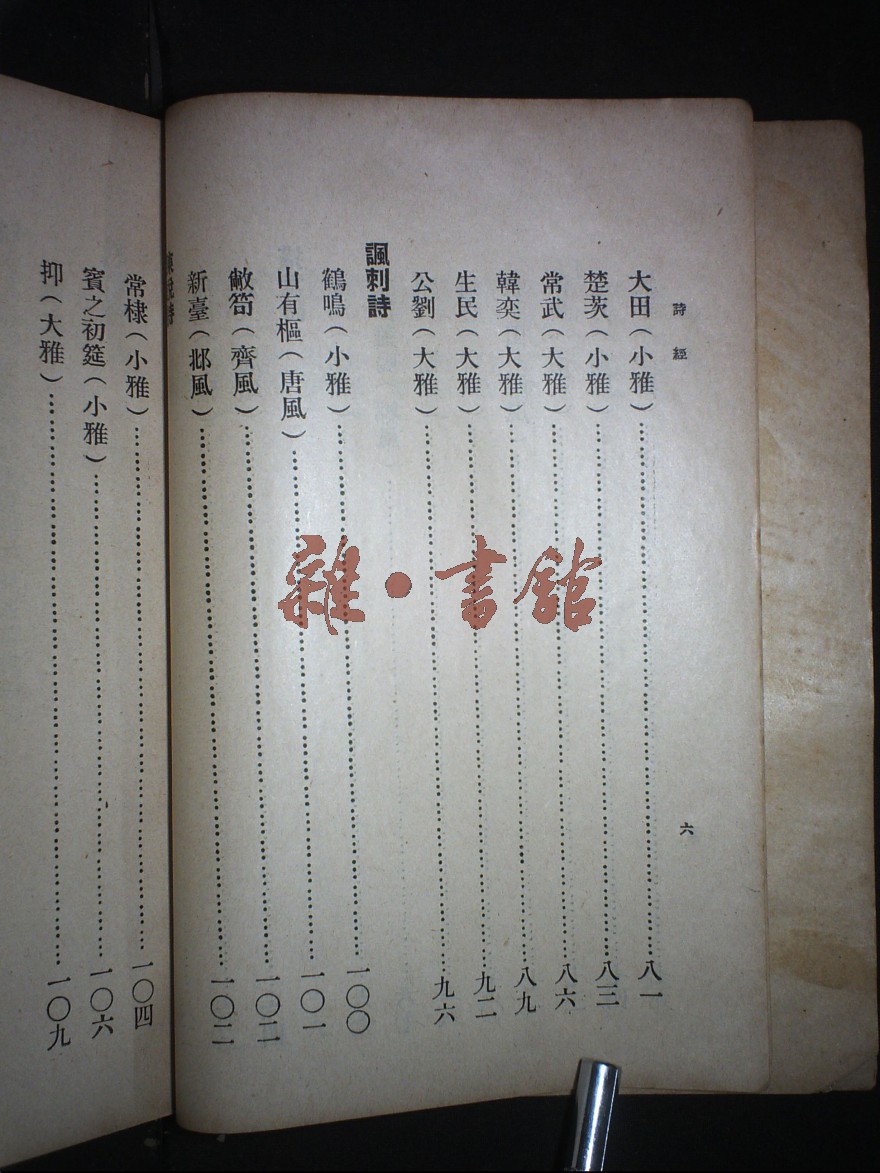 詩經
六
大田（小雅）……八一
楚茨（小雅）……八三
常武（大雅）……八六
韓奕（大雅）……八九
生民（大雅）……九二
公劉（大雅）……九六
諷刺詩
鶴鳴（小雅）……一〇〇
山有樞（唐風）……一〇一
敝笱（齊風）……一〇二
新臺（邶風）……一〇二
常棣（小雅）……一〇四
賓之初筵（小雅）……一〇六
抑（大雅）……一〇九
雜·書館